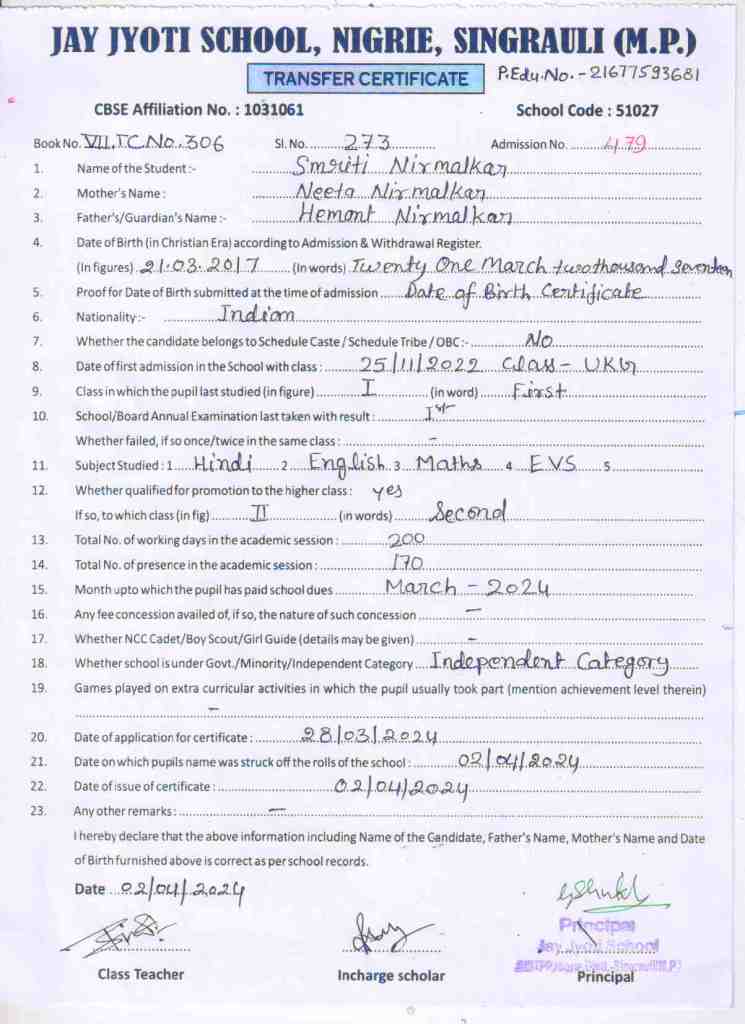 JAY JYOTI SCHOOL, NIGRIE, SINGRAULI (M.P.)
TRANSFER CERTIFICATE P.Edu.No.-21677593681
CBSE Affiliation No. : 1031061 School Code : 51027
Book No. VII,TC.No.306 Sl. No. 273 Admission No. 479
1. Name of the Student :- Smriti Nirmalkar
2. Mother's Name : Neeta Nirmalkar
3. Father's/Guardian's Name :- Hemant Nirmalkar
4. Date of Birth (in Christian Era) according to Admission & Withdrawal Register.
(In figures) 21.03.2017 (In words) Twenty One March twothousand seventeen
5. Proof for Date of Birth submitted at the time of admission Date of Birth Certificate
6. Nationality:- Indian
7. Whether the candidate belongs to Schedule Caste / Schedule Tribe / OBC :- No
8. Date of first admission in the School with class : 25/11/2022 Class - UKG
9. Class in which the pupil last studied (in figure) I (in word) First
10. School/Board Annual Examination last taken with result : Ist
Whether failed, if so once/twice in the same class : -
11. Subject Studied : 1 Hindi 2 English 3 Maths 4 EVS 5
12. Whether qualified for promotion to the higher class : yes
If so, to which class (in fig) II (in words) Second
13. Total No. of working days in the academic session : 200
14. Total No. of presence in the academic session : 170
15. Month upto which the pupil has paid school dues March - 2024
16. Any fee concession availed of, if so, the nature of such concession -
17. Whether NCC Cadet/Boy Scout/Girl Guide (details may be given) -
18. Whether school is under Govt./Minority/Independent Category Independent Category
19. Games played on extra curricular activities in which the pupil usually took part (mention achievement level therein)
-
20. Date of application for certificate : 28/03/2024
21. Date on which pupils name was struck off the rolls of the school : 02/04/2024
22. Date of issue of certificate : 02/04/2024
23. Any other remarks : -
I hereby declare that the above information including Name of the Candidate, Father's Name, Mother's Name and Date
of Birth furnished above is correct as per school records.
Date 02/04/2024
Principal
Jay Jyoti School
Class Teacher Incharge scholar Principal